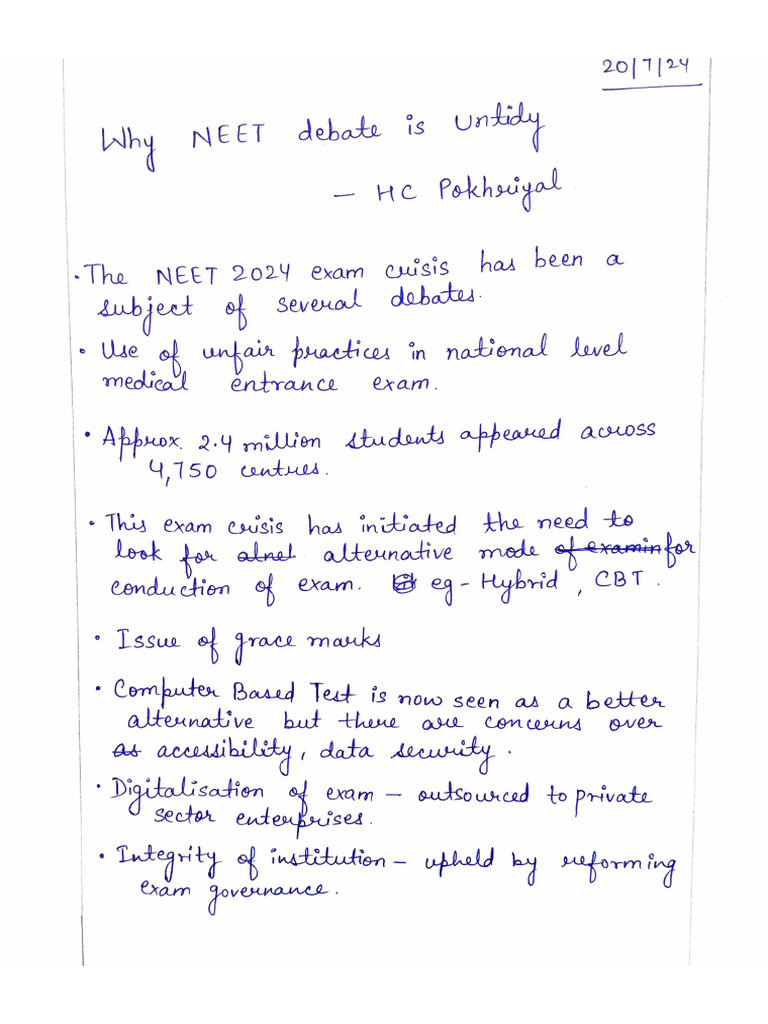 20/7/24
Why NEET debate is Untidy
- HC Pokhriyal
• The NEET 2024 exam crisis has been a
subject of several debates.
• Use of unfair practices in national level
medical entrance exam.
• Approx. 2.4 million students appeared across
4,750 centres.
• This exam crisis has initiated the need to
look for alnet alternative mode of examin for
conduction of exam. eg - Hybrid, CBT.
• Issue of grace marks
• Computer Based Test is now seen as a better
alternative but there are concerns over
as accessibility, data security.
• Digitalisation of exam - outsourced to private
sector enterprises.
• Integrity of institution - upheld by reforming
exam governance.